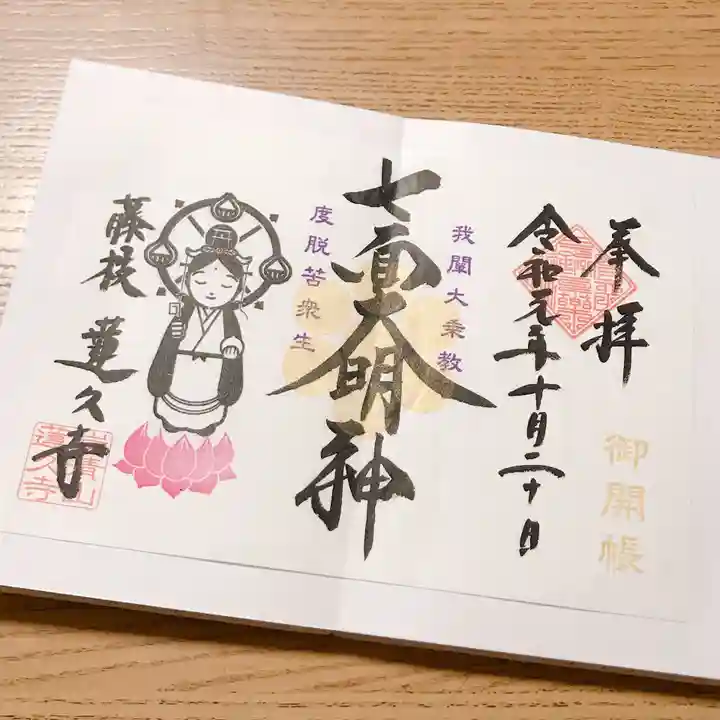 奉拝
御開帳
令和元年十月二十日
我闡大乗教
七面大明神
度脱苦衆生
藤枝 蓮久寺
青山
蓮久寺